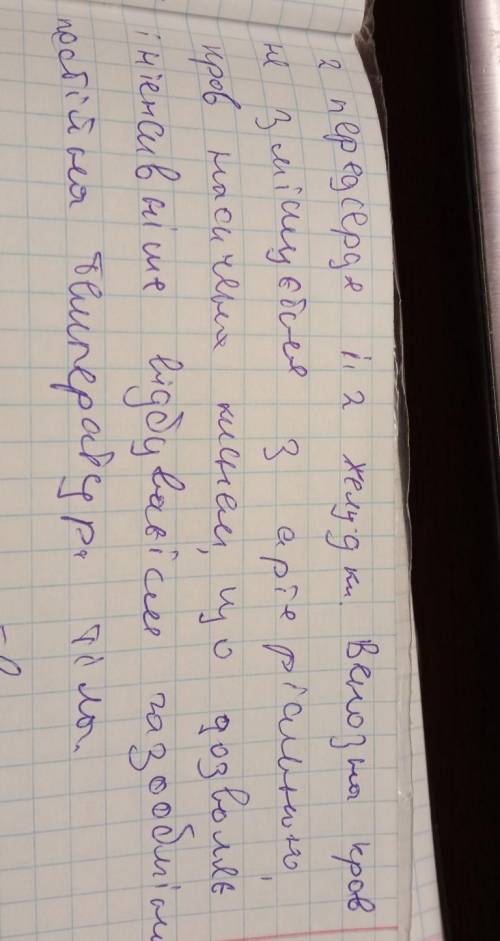 2 передсердя і 2 желудки. Венозна кров
не змішується з артеріальною,
кров насичена киснем, що дозволяє
інтенсивніше відбуватися газообмін
постійна температура тіла.